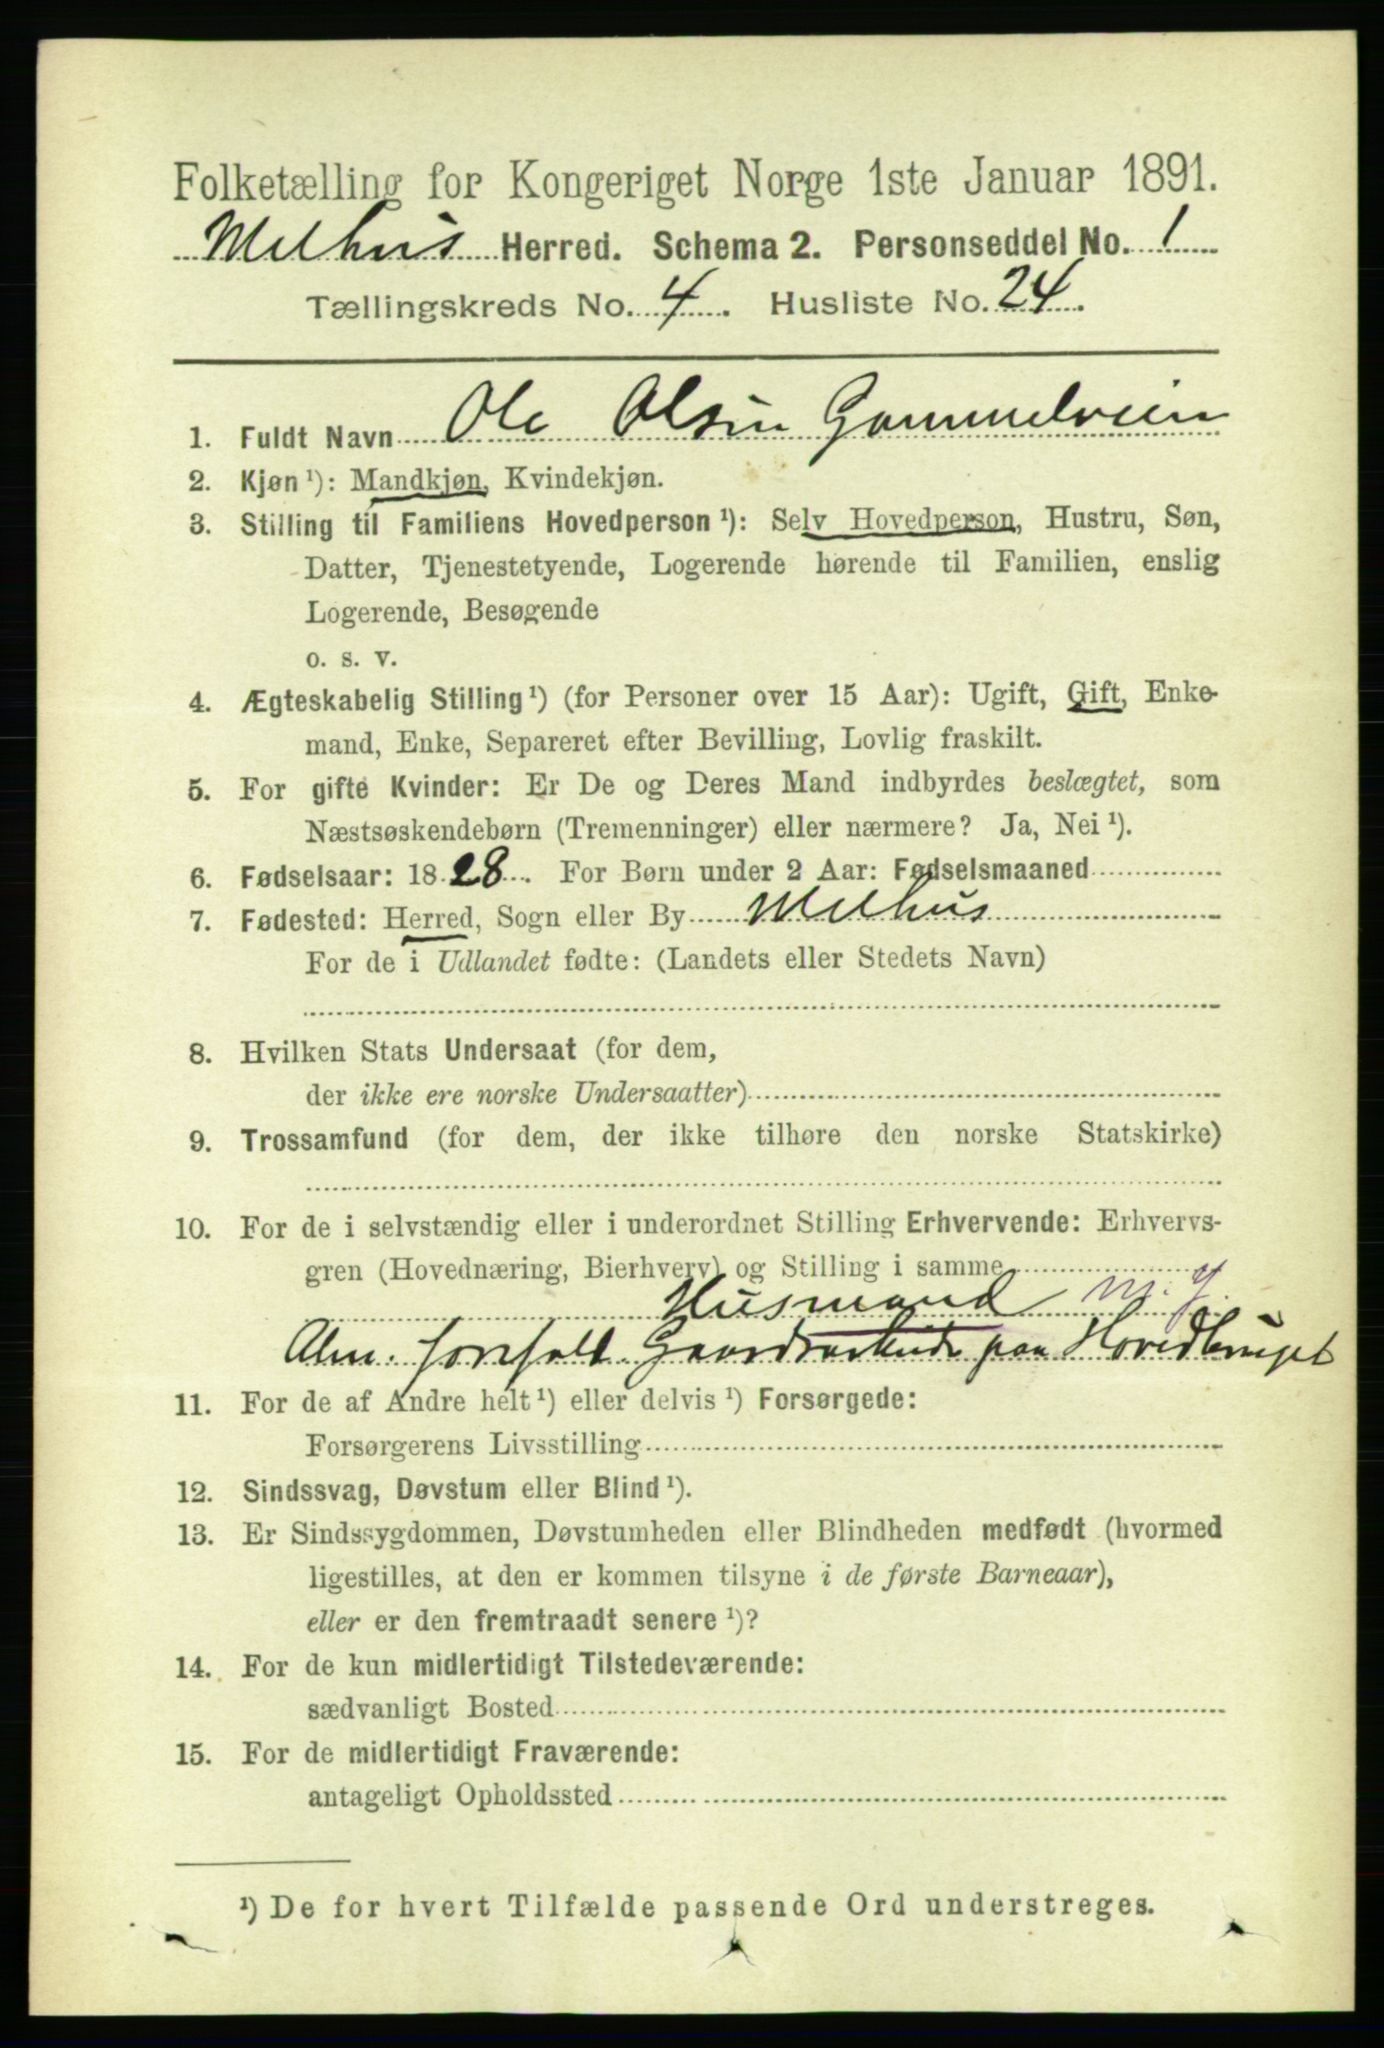 Folketælling for Kongeriget Norge 1ste Januar 1891.
Melhus Herred. Schema 2. Personseddel No. 1
Tællingskreds No. 4. Husliste No. 24.
1. Fuldt Navn Ole Olsen Gammelveien
2. Kjøn ¹): Mandkjøn, Kvindekjøn.
3. Stilling til Familiens Hovedperson ¹): Selv Hovedperson, Hustru, Søn,
Datter, Tjenestetyende, Logerende hørende til Familien, enslig
Logerende, Besøgende
o. s. v.
4. Ægteskabelig Stilling ¹) (for Personer over 15 Aar): Ugift, Gift, Enke-
mand, Enke, Separeret efter Bevilling, Lovlig fraskilt.
5. For gifte Kvinder: Er De og Deres Mand indbyrdes beslægtet, som
Næstsøskendebørn (Tremenninger) eller nærmere? Ja, Nei ¹).
6. Fødselsaar: 1828. For Børn under 2 Aar: Fødselsmaaned
7. Fødested: Herred, Sogn eller By Melhus
For de i Udlandet fødte: (Landets eller Stedets Navn)
8. Hvilken Stats Undersaat (for dem,
der ikke ere norske Undersaatter)
9. Trossamfund (for dem, der ikke tilhøre den norske Statskirke)
10. For de i selvstændig eller i underordnet Stilling Erhvervende: Erhvervs-
gren (Hovednæring, Bierhverv) og Stilling i samme
Husmand m. J.
Alm. forefald. Gaardsarbeide paa Hovedbruget
11. For de af Andre helt ¹) eller delvis ¹) Forsørgede:
Forsørgerens Livsstilling
12. Sindssvag, Døvstum eller Blind ¹).
13. Er Sindssygdommen, Døvstumheden eller Blindheden medfødt (hvormed
ligestilles, at den er kommen tilsyne i de første Barneaar),
eller er den fremtraadt senere ¹)?
14. For de kun midlertidigt Tilstedeværende:
sædvanligt Bosted
15. For de midlertidigt Fraværende:
antageligt Opholdssted
¹) De for hvert Tilfælde passende Ord understreges.